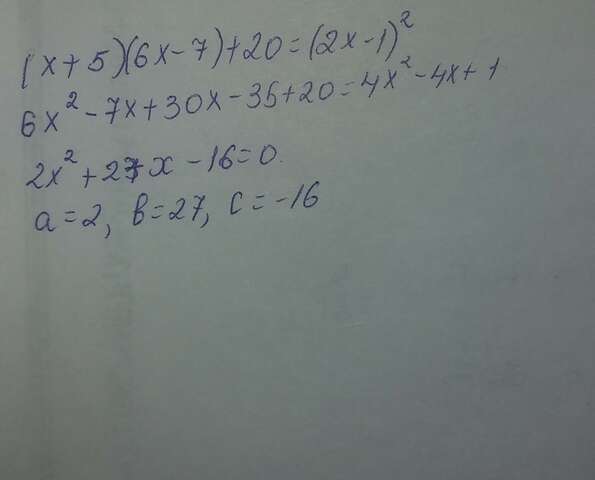 (x+5)(6x-7)+20=(2x-1)²
6x²-7x+30x-35+20=4x²-4x+1
2x²+27x-16=0.
a=2, b=27, c=-16